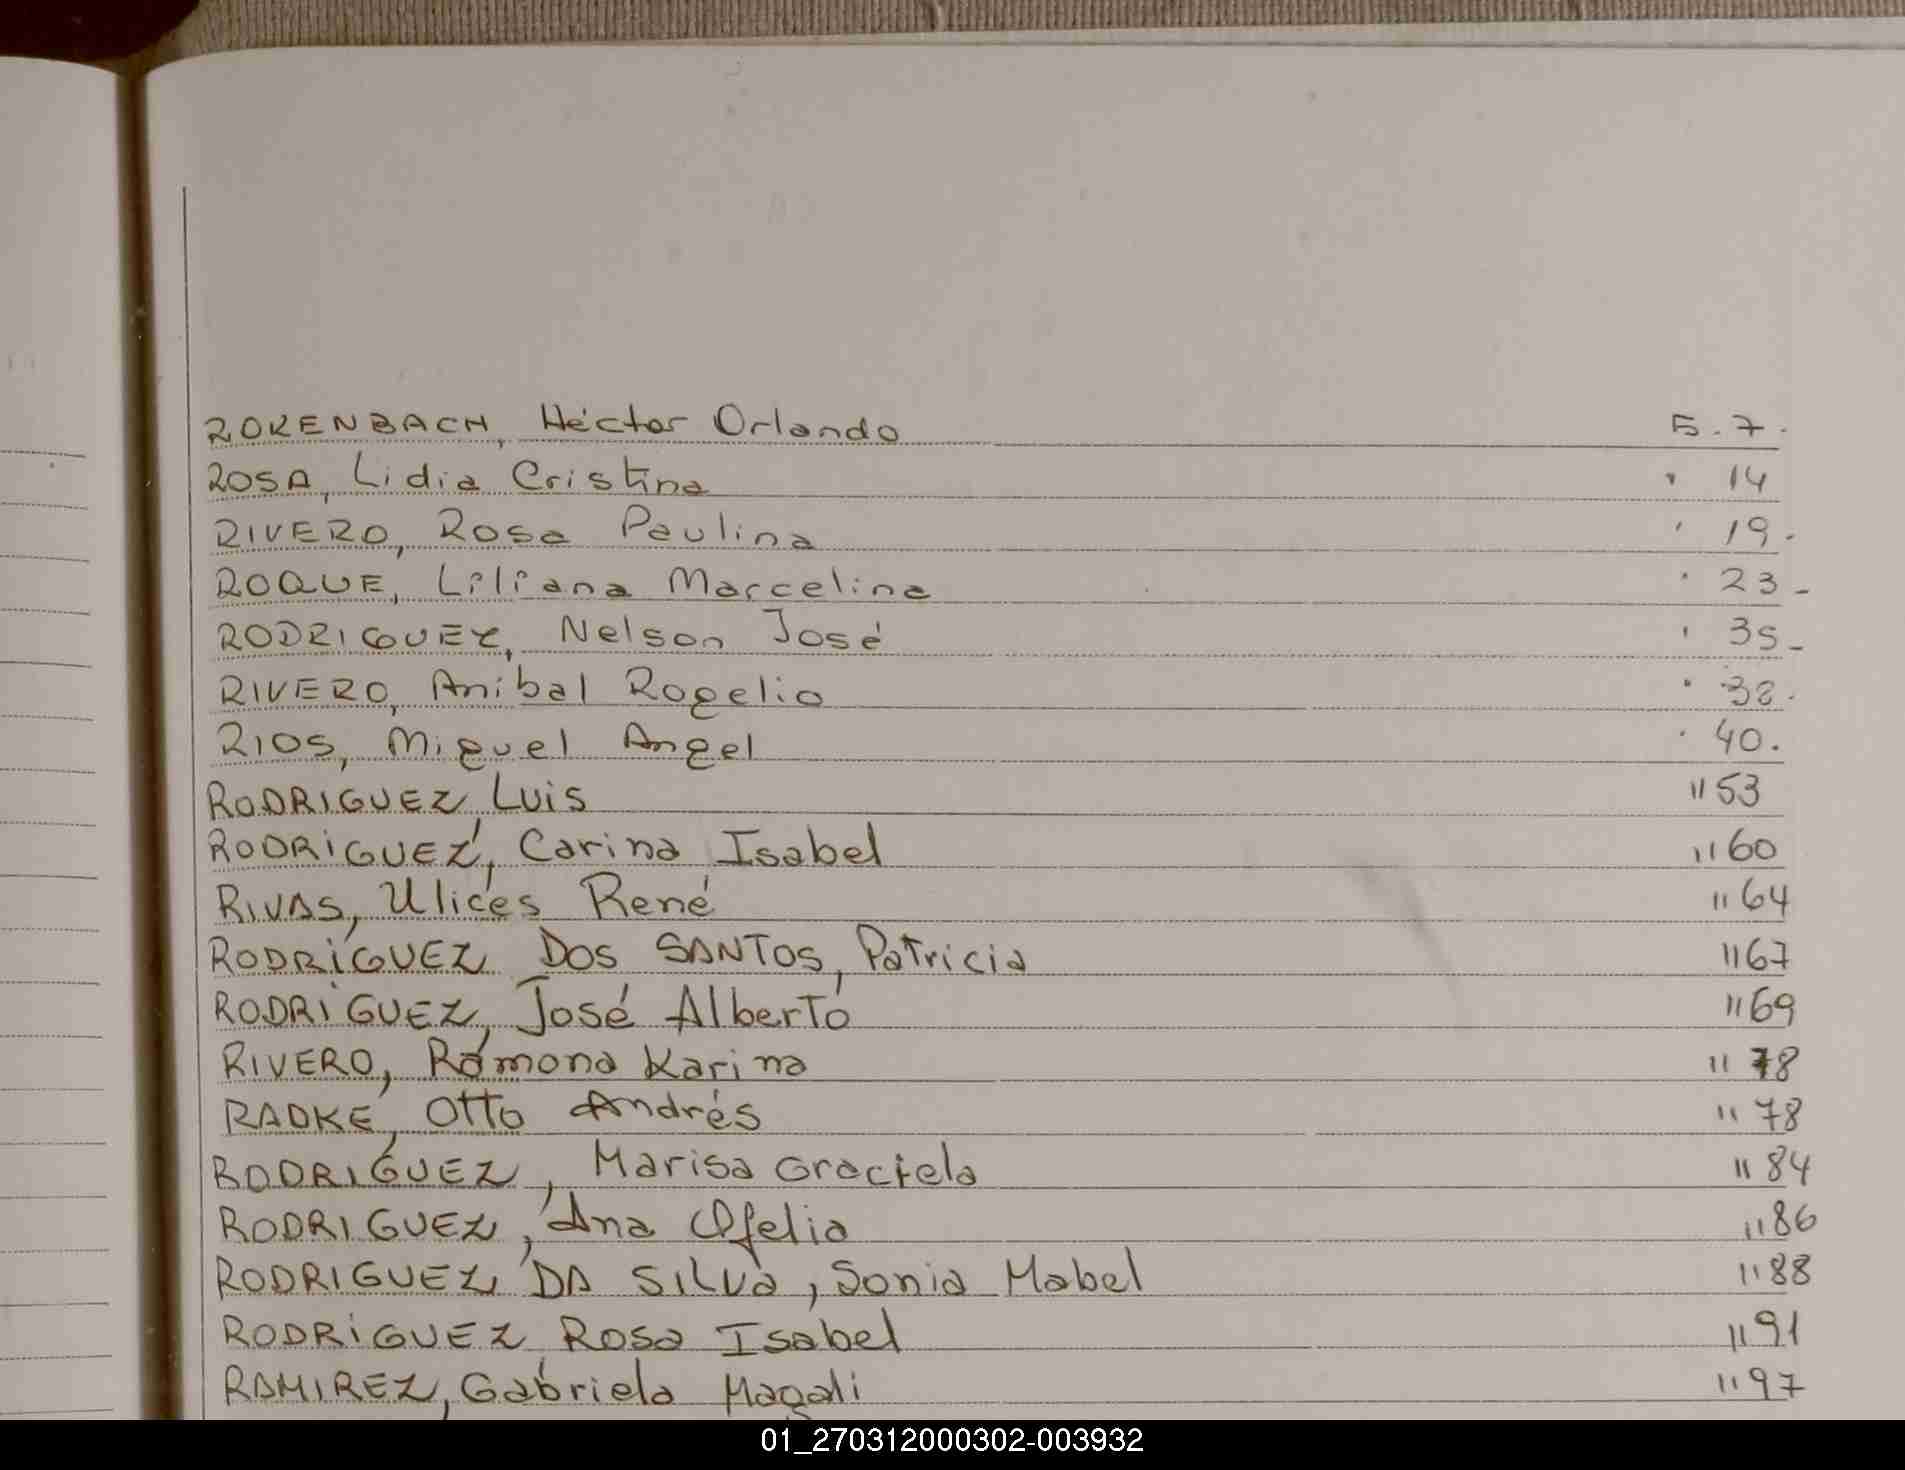 ROKENBACH, Héctor Orlando 5. 7.
ROSA, Lidia Cristina " 14
RIVERO, Rosa Paulina ' 19.
ROQUE, Liliana Marcelina ' 23-
RODRIGUEZ, Nelson José ' 35-
RIVERO, Anibal Rogelio " 38.
RIOS, Miguel Angel ' 40.
RODRIGUEZ, Luis " 53
RODRIGUEZ, Carina Isabel " 60
RIVAS, Ulices René " 64
RODRIGUEZ DOS SANTOS, Patricia " 67
RODRIGUEZ, José Alberto " 69
RIVERO, Ramona Karina " 78
RADKE, Otto Andrés " 78
RODRIGUEZ, Marisa Graciela " 84
RODRIGUEZ, Ana Ofelia " 86
RODRIGUEZ DA SILVA, Sonia Mabel " 88
RODRIGUEZ Rosa Isabel " 91
RAMIREZ, Gabriela Magali " 97
01_270312000302-003932